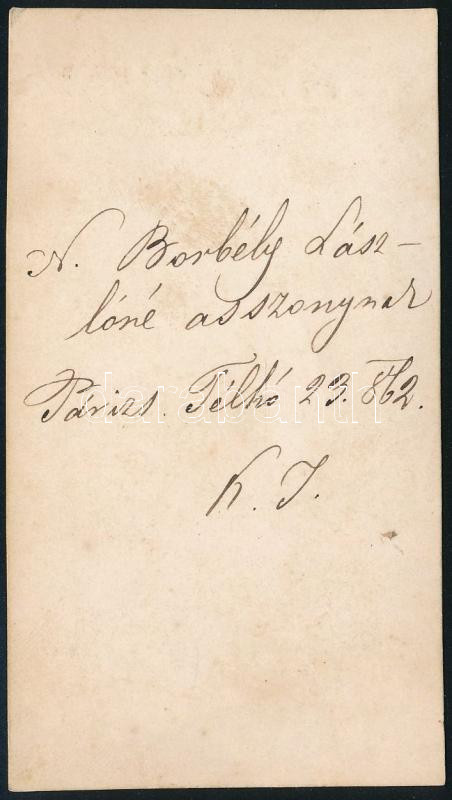 N. Borbély Lász-
lóné asszonynak
Párizs. Télhó 23. 862.
K. J.
darabanth